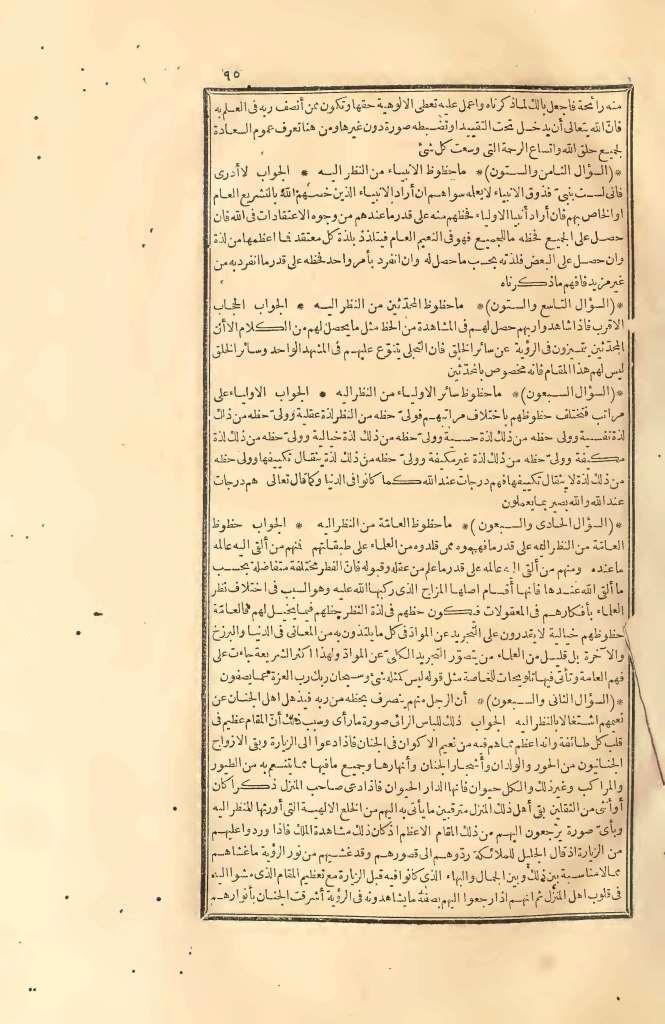 ٩٥
منه رائحة فاجعل بالك لما ذكرناه واعمل عليه تعطى الالوهية حقها وتكون ممن أنصف ربه فى العلم به
فان الله يتعالى أن يدخل تحت التقييد او تضبطه صورة دون غيرها ومن هنا تعرف عموم السعادة
لجميع خلق الله واتساع الرحمة التى وسعت كل شئ
* (السؤال الثامن والستون) * ما حظوظ الانبياء من النظر اليه * الجواب لا أدرى
فانى لست بنبىّ فذوق الانبياء لا يعلمه سواهم ان أراد الانبياء الذين خصهم الله بالتشريع العام
او الخاص بهم فان أراد أنبياء الاولياء فحظهم منه على قدر ما عندهم من وجوه الاعتقادات فى الله فان
حصل على الجميع فحظه ما للجميع فهو فى النعيم العام فيتلذذ بلذة كل معتقد فما اعظمها من لذة
وان حصل على البعض فلذته بحسب ما حصل له وان انفرد بأمر واحد فحظه على قدر ما انفرد به من
غير مزيد فافهم ما ذكرناه
* (السؤال التاسع والستون) * ما حظوظ المحدّثين من النظر اليه * الجواب الحجاب
الاقرب فاذا شاهدوا ربهم حصل لهم فى المشاهدة من الحظ مثل ما يحصل لهم من الكلام الا أن
المحدّثين يتميزون فى الرؤية عن سائر الخلق فان التجلى يتنوّع عليهم فى المشهد الواحد وسائر الخلق
ليس لهم هذا المقام فانه مخصوص بالمحدّثين
* (السؤال السبعون) * ما حظوظ سائر الاولياء من النظر اليه * الجواب الاولياء على
مراتب فتختلف حظوظهم باختلاف مراتبهم فولىّ حظه من النظر لذة عقلية وولىّ حظه من ذلك
لذة نفسية وولى حظه من ذلك لذة حسية وولىّ حظه من ذلك لذة خيالية وولىّ حظه من ذلك لذة
مكيفة وولىّ حظه من ذلك لذة غير مكيفة وولىّ حظه من ذلك لذة ينقال تكييفها وولى حظه
من ذلك لذة لا ينقال تكييفها فهم درجات عند الله كما كانوا فى الدنيا وكما قال تعالى هم درجات
عند الله والله بصير بما يعملون
* (السؤال الحادى والسبعون) * ما حظوظ العامّة من النظر اليه * الجواب حظوظ
العامّة من النظر اليه على قدر ما فهموه ممن قلدوه من العلماء على طبقاتهم فمنهم من ألقى اليه عالمه
ما عنده ومنهم من ألقى اليه عالمه على قدر ما علم من عقله وقبوله فان الفطر مختلفة متفاضلة بحسب
ما ألقى الله عندها فانها أقسام اصلها المزاج الذى ركبها الله عليه وهو السبب فى اختلاف نظر
العلماء بأفكارهم فى المعقولات فيكون حظهم فى لذة النظر حظهم فيما يتخيل لهم فالعامّة
حظوظهم خيالية لا يقدرون على التجريد عن الموادّ فى كل ما يلتذون به من المعانى فى الدنيا والبرزخ
والآخرة بل قليل من العلماء من يتصوّر التجريد الكلىّ عن الموادّ ولهذا اكثر الشريعة جاءت على
فهم العامة وتأتى فيها تلويحات للخاصة مثل قوله ليس كمثله شئ وسبحان ربك رب العزة عما يصفون
* (السؤال الثانى والسبعون) * أن الرجل منهم ينصرف بحظه من ربه فيذهل اهل الجنان عن
نعيمهم اشتغالا بالنظر اليه الجواب ذلك للباس الرائى صورة ما رأى وسبب ذلك أنّ المقام عظيم فى
قلب كل طائفة وانه اعظم مما هم فيه من نعيم الاكوان فى الجنان فاذا دعوا الى الزيارة وبقى الازواج
الجنانيون من الحور والولدان وأشجار الجنان وأنهارها وجميع ما فيها مما يتنعم به من الطيور
والمراكب وغير ذلك والكل حيوان فانها الدار الحيوان فاذا دعى صاحب المنزل ذكرا كان
أو أنثى من الثقلين بقى أهل ذلك المنزل مترقبين ما يأتى به اليهم من الخلع الالهية التى أورثها المنظر اليه
وبأىّ صورة يرجعون اليهم من ذلك المقام الاعظم اذ كان ذلك مشاهدة الملك فاذا وردوا عليهم
من الزيارة اذ قال الجليل للملائكة ردّوهم الى قصورهم وقد غشيهم من نور الرؤية ما غشاهم
مما لا مناسبة بين ذلك وبين الجمال والبهاء الذى كانوا فيه قبل الزيارة مع تعظيم المقام الذى مشوا اليه
فى قلوب اهل المنزل ثم انهم اذا رجعوا اليهم بصفة ما يشاهدونه فى الرؤية أشرقت الجنان بأنوارهم